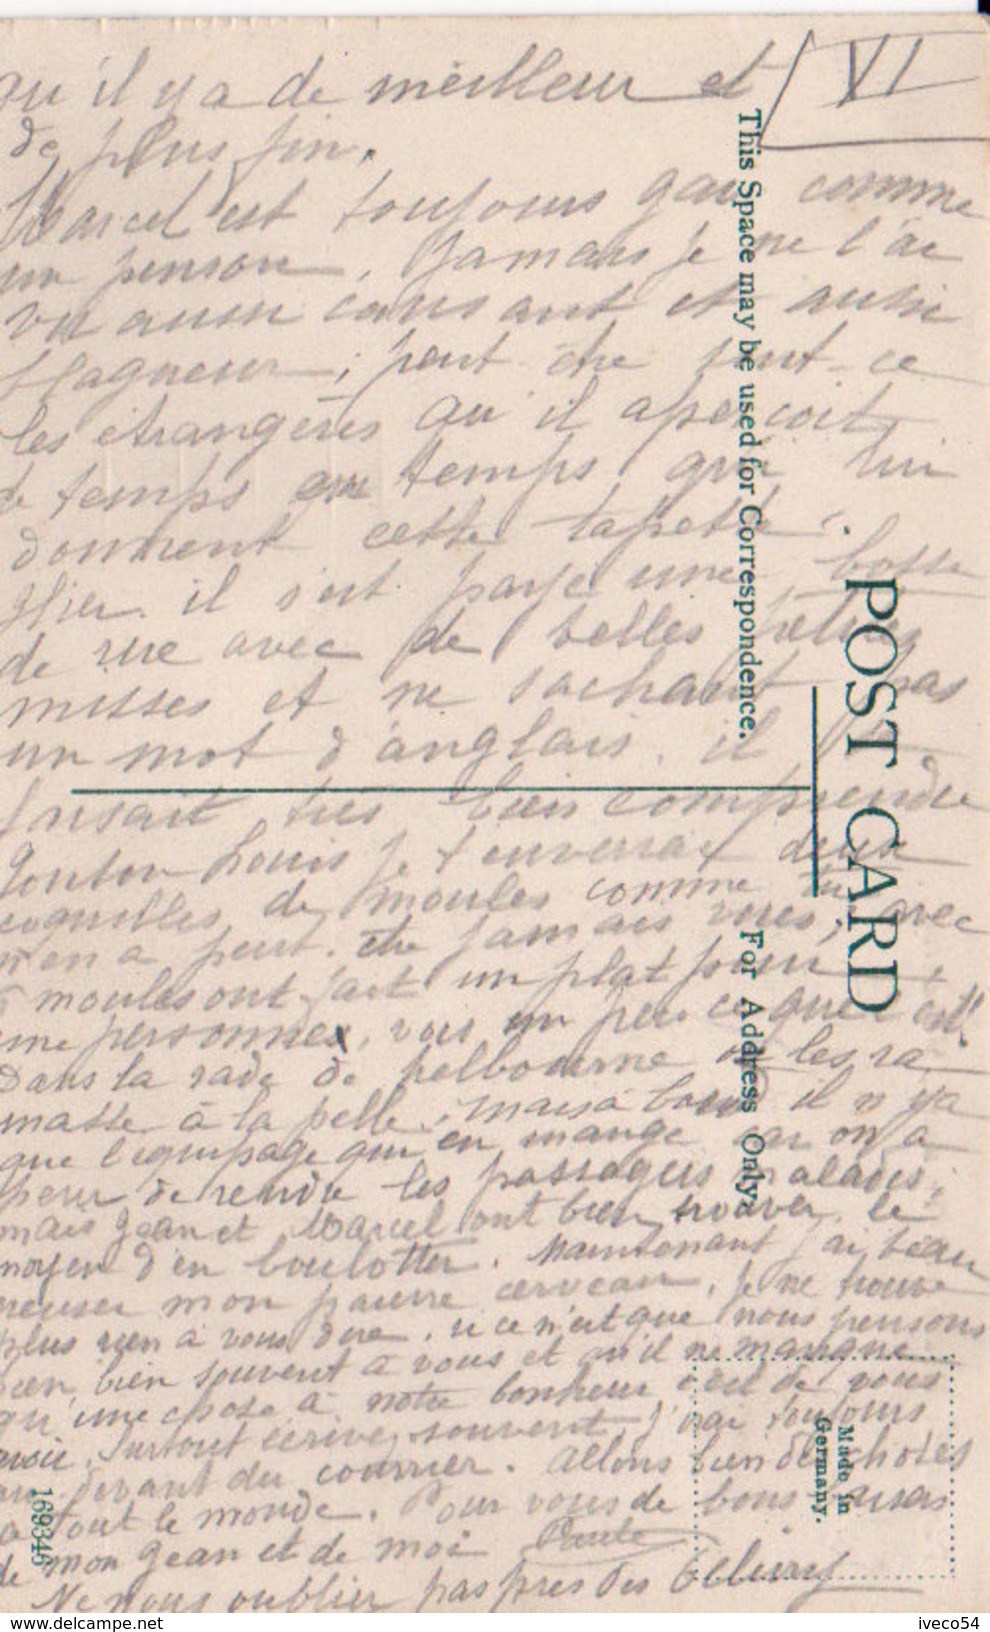 VI
qu'il y a de meilleur et
de plus fin.
Marcel est toujours gai comme
un pinson. Jamais je ne l'ai
vu aussi causant et aussi
blagueur, peut être sont-ce
les étrangères qu'il aperçoit
de temps en temps qui lui
donnent cette tapette.
Hier il s'est payé une bosse
de rire avec de belles petites
misses et ne sachant pas
un mot d'anglais, il
faisait très bien comprendre
Tonton Louis je t'enverrai deux
coquilles de moules comme tu
n'en a peut être jamais vues, avec
6 moules ont fait un plat pour
une personne, vois un peu ce que c'est!
Dans la rade de Melbourne on les ra
masse à la pelle, mais à bord il n'y a
que l'équipage qui en mange car on a
peur de rendre les passagers malades,
mais Jean et Marcel ont bien trouver le
moyen d'en boulotter. Maintenant j'ai beau
creuser mon pauvre cerveau, je ne trouve
plus rien à vous dire, si ce n'est que nous pensons
bien, bien souvent à vous et qu'il ne manque
qu'une chose à notre bonheur c'est de vous
avoir. Surtout écrivez souvent, j'irai toujours
au devant du courrier. Allons bien des choses
à tout le monde. Pour vous de bons baisers
de mon Jean et de moi Paule
Ne nous oublier pas près des
This Space may be used for Correspondence.
For Address Only.
POST CARD
Made in
Germany.
169346
www.delcampe.net
iveco54